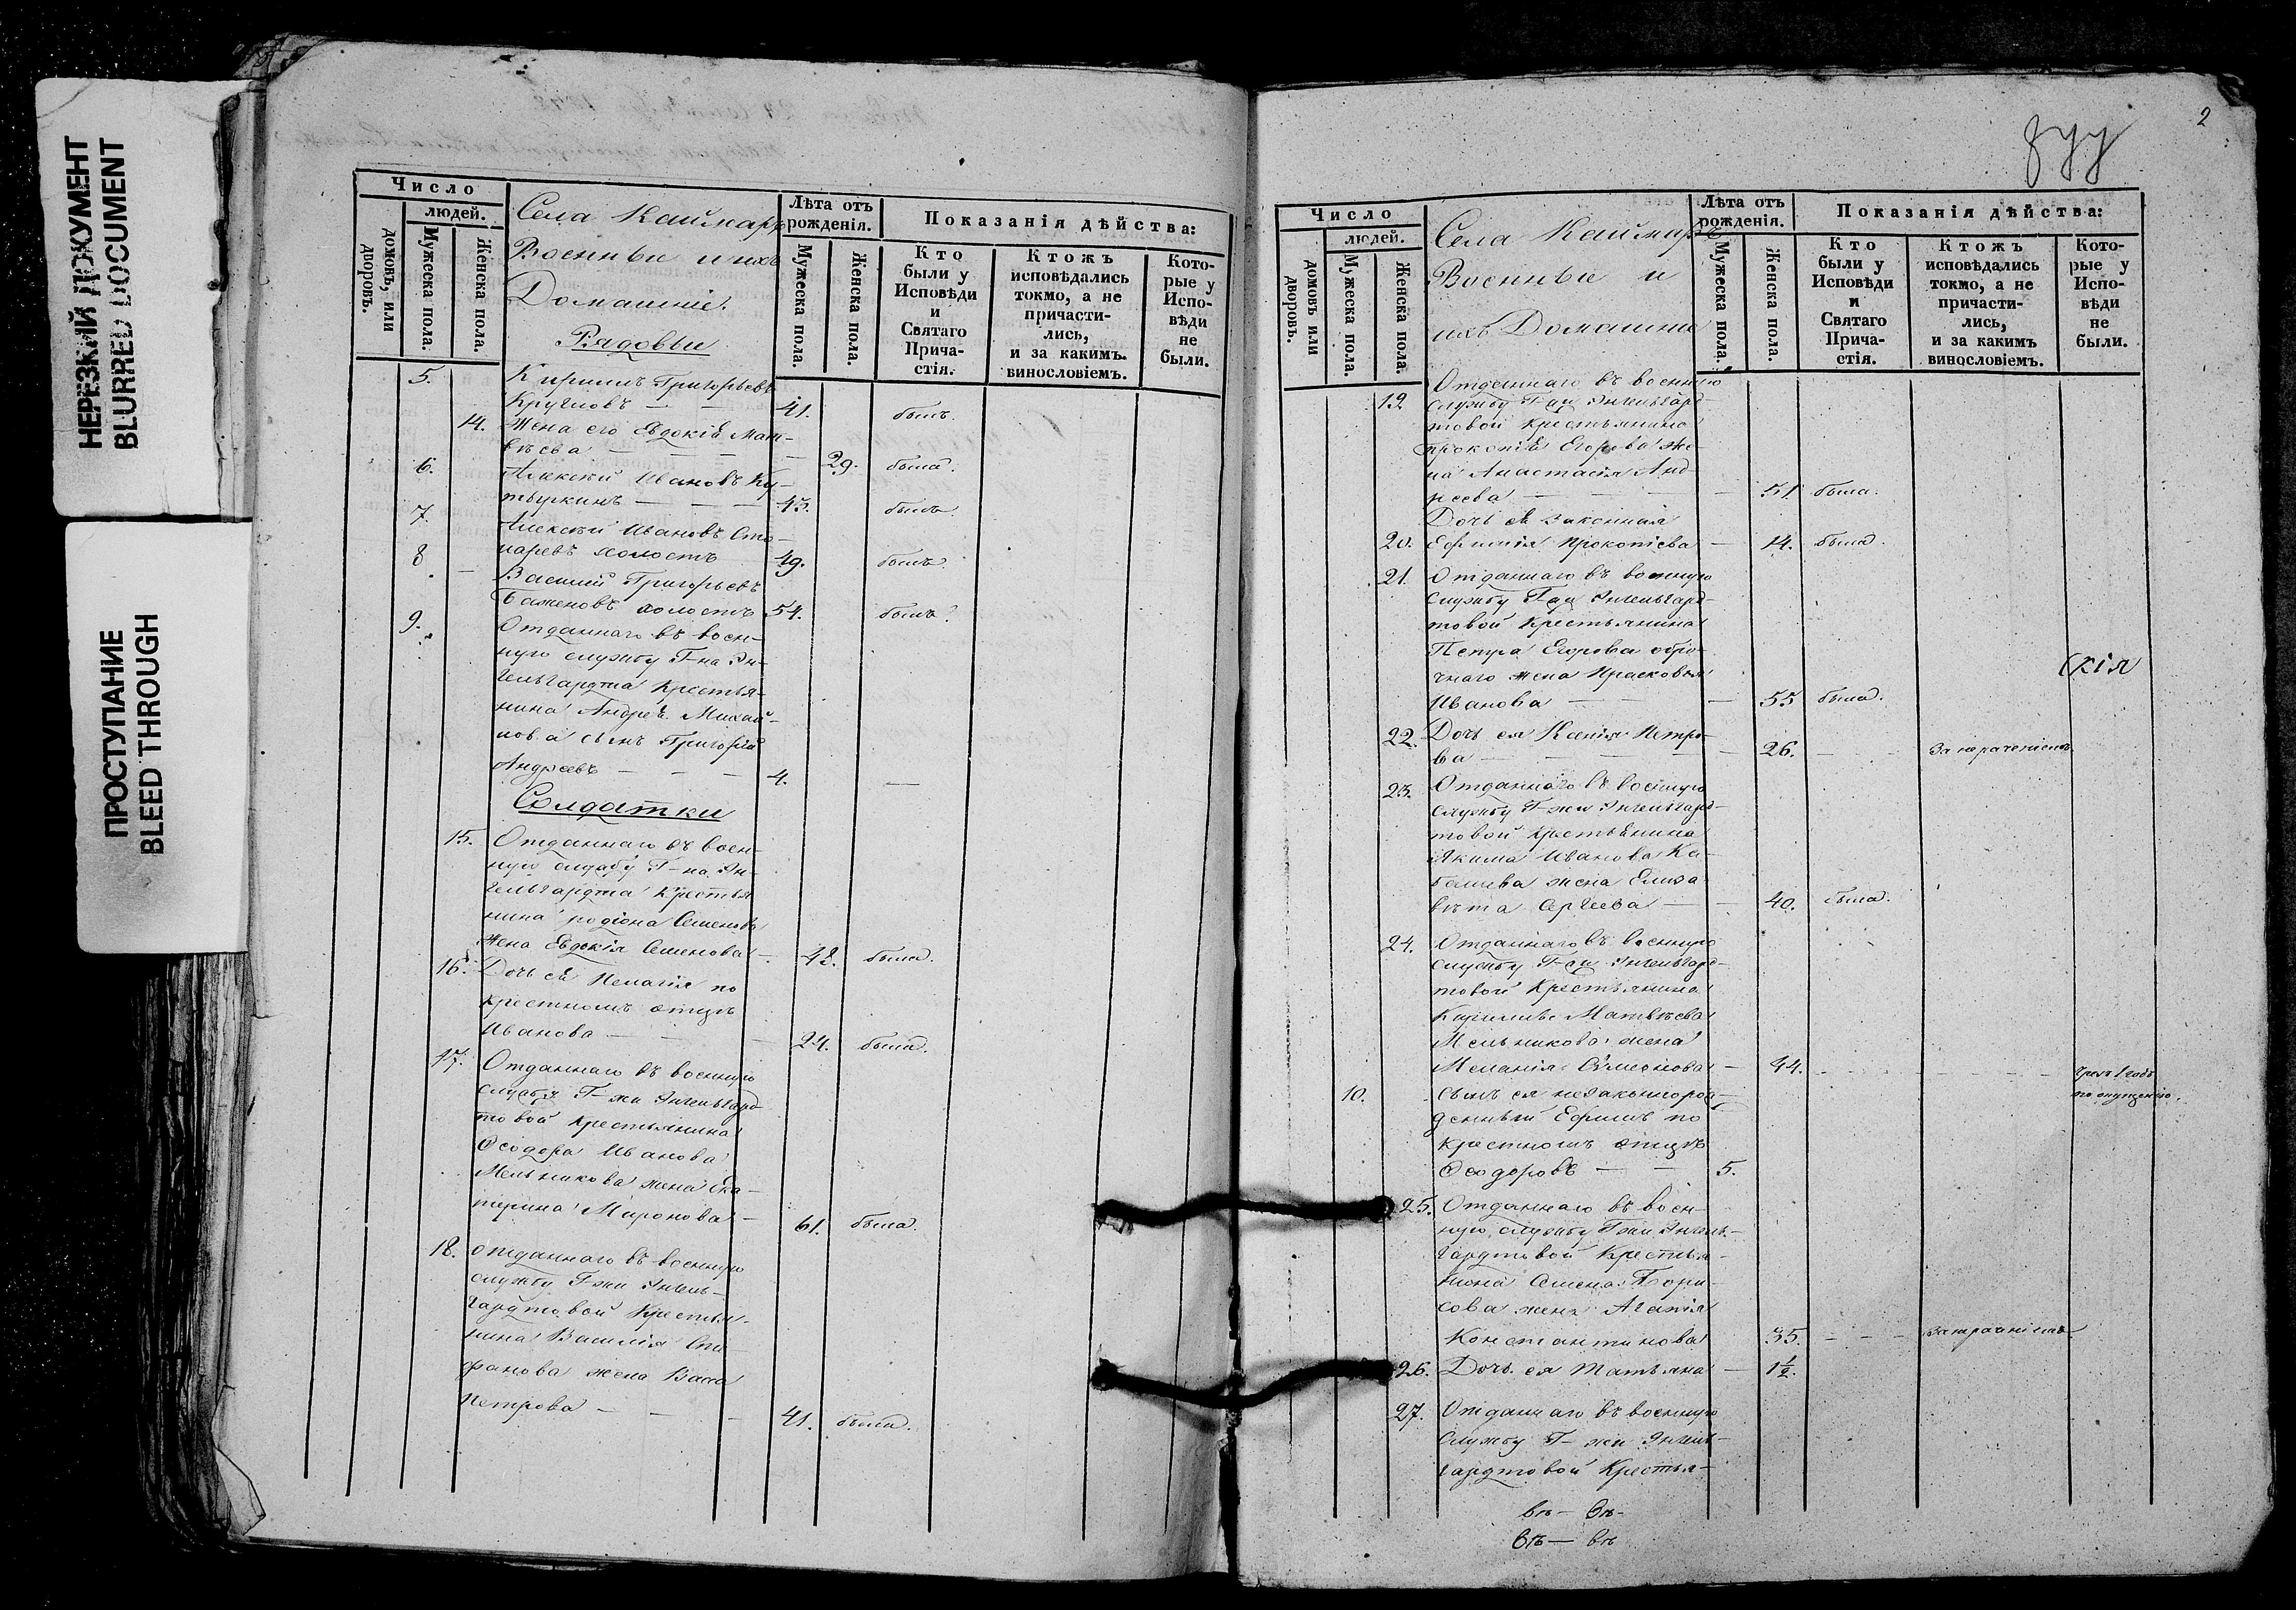 НЕРЕЗКИЙ ДОКУМЕНТ
BLURRED DOCUMENT
ПРОСТУПАНИЕ
BLEED THROUGH
Число
людей.
домовъ, или дворовъ.
Мужеска пола.
Женска пола.
Села Каймаръ
Военные и ихъ
Домашніе.
Рядовые
Лѣта отъ рожденія.
Мужеска пола.
Женска пола.
Показанія дѣйства:
Кто были у Исповѣди и Святаго Прича-стія.
Ктожъ исповѣдались токмо, а не причасти-лись, и за какимъ винословіемъ.
Кото-рые у Испо-вѣди не были.
5. Кирилъ Григорьевъ
Кругловъ — — 41. былъ.
14. Жена его Евдокія Мат-
вѣева — — — 29. была.
6. Алексѣй Ивановъ Ку-
тыркинъ — — — 43. былъ.
7. Алексѣй Ивановъ Сто-
ляревъ холостъ 49. былъ.
8. Василій Григорьевъ
Баженовъ холостъ 54. былъ.
9. Отданнаго въ воен-
ную службу Г-на Эн-
гельгардта Крестья-
нина Андрея Михай-
лова сынъ Григорій
Андреевъ — — — 4. —
Солдатки
15. Отданнаго въ воен-
ную службу Г-на Эн-
гельгардта Крестья
нина Родіона Семенова
Жена Евдокія Семенова — 48. была.
16. Дочь ея Пелагія по
крестномъ отцѣ
Иванова — — — 24. была.
17. Отданнаго въ военную
службу Г-жи Энгельгард
товой Крестьянина
Ѳеодора Иванова
Мельникова жена Ека-
терина Миронова — 61. была.
18. Отданнаго въ военную
службу Г-жи Энгель-
гардтовой Крестья-
нина Василія Сте-
фанова жена Васса
Петрова — — — 41. была.
2
Число
людей.
домовъ или дворовъ.
Мужеска пола.
Женска пола.
Села Каймаръ
Военные и
ихъ Домашніе
Лѣта отъ рожденія.
Мужеска пола.
Женска пола.
Показанія дѣйства:
Кто были у Исповѣди и Святаго Прича-стія.
Ктожъ исповѣдались токмо, а не причасти-лись, и за какимъ винословіемъ.
Кото-рые у Испо-вѣди не были.
19 Отданнаго въ военную
службу Г-жи Энгельгард-
товой Крестьянина
Прокопія Егорова же-
на Анастасія Анд-
реева — — — — 51. была.
Дочь ея законная
20. Ефимія Прокопіева — 14. была.
21. Отданнаго въ военную
службу Г-жи Энгельгард-
товой Крестьянина
Петра Егорова обро-
чнаго жена Прасковья
Иванова — — — 55 была.
скія
22. Дочь ея Ксенія Петро-
ва — — — — 26. — — За нераченіемъ
23. Отданнаго въ военную
службу Г-жи Энгельгард-
товой Крестьянина
Якима Иванова Ка-
башева жена Елиза-
вѣта Сергѣева — — 40. была.
24. Отданнаго въ военную
службу Г-жи Энгельгард-
товой Крестьянина
Кирилы Матвѣева
Мельникова жена
Меланія Симеонова — 44. — — — — —
по опущенію.
10. Сынъ ея незаконнорож-
денный Ефимъ по
крестномъ отцѣ
Ѳеодоровъ — — 5.
25. Отданнаго въ воен-
ную службу Г-жи Энгель-
гардтовой Крестья-
нина Семена Бори-
сова жена Агафія
Константинова 35. — — — За нераченіемъ
26. Дочь ея Татьяна — 1½.
27. Отданнаго въ военную
службу Г-жи Энгель-
гардтовой Крестья-
въ — въ
въ — въ